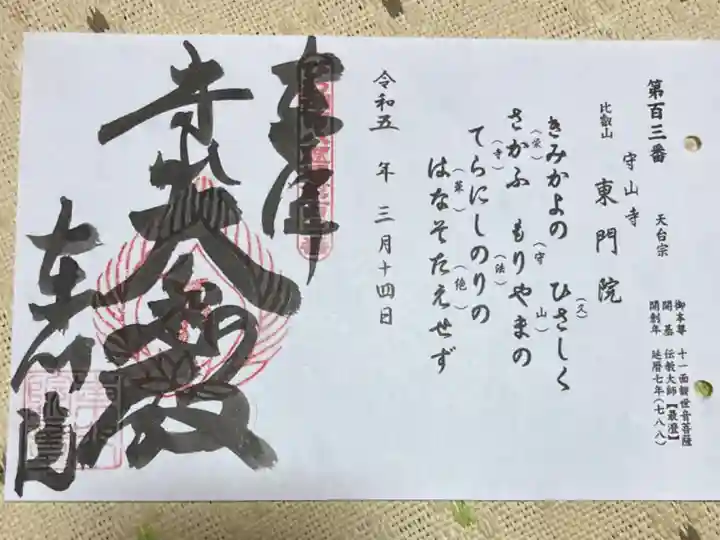 第百三番
比叡山
守山寺
天台宗
東門院
御本尊 十一面観世音菩薩
開基 伝教大師【最澄】
開創年 延暦七年(七八八)
きみかよの ひさしく
(久)
さかふ もりやまの
(栄)
(守
山)
てらにしのりの
(寺)
(法)
はなそたえせず
(華)
(絶)
令和五年三月十四日
奉拝
大悲殿
守山寺
東門院